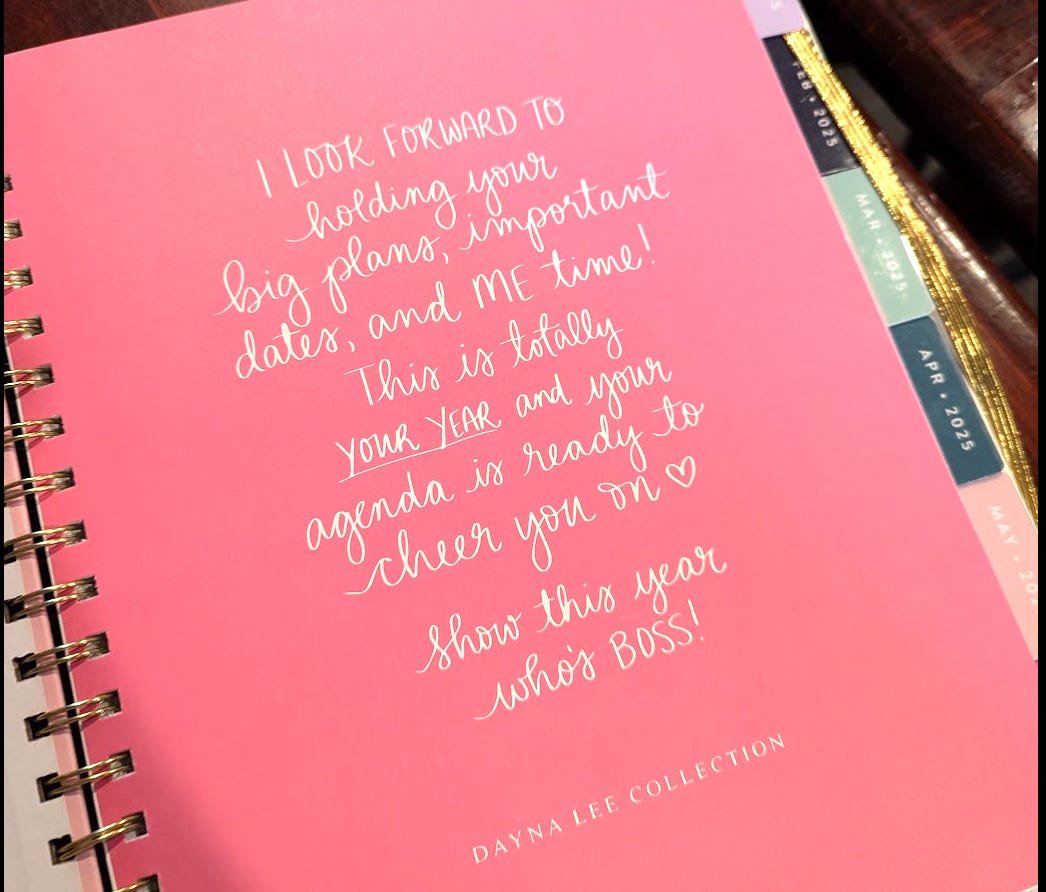 I LOOK FORWARD TO
holding your
big plans, important
dates, and ME time!
This is totally
YOUR YEAR and your
agenda is ready to
cheer you on ♡
show this year
who's BOSS!
DAYNA LEE COLLECTION
S
FEB • 2025
MAR • 2025
APR • 2025
MAY • 202